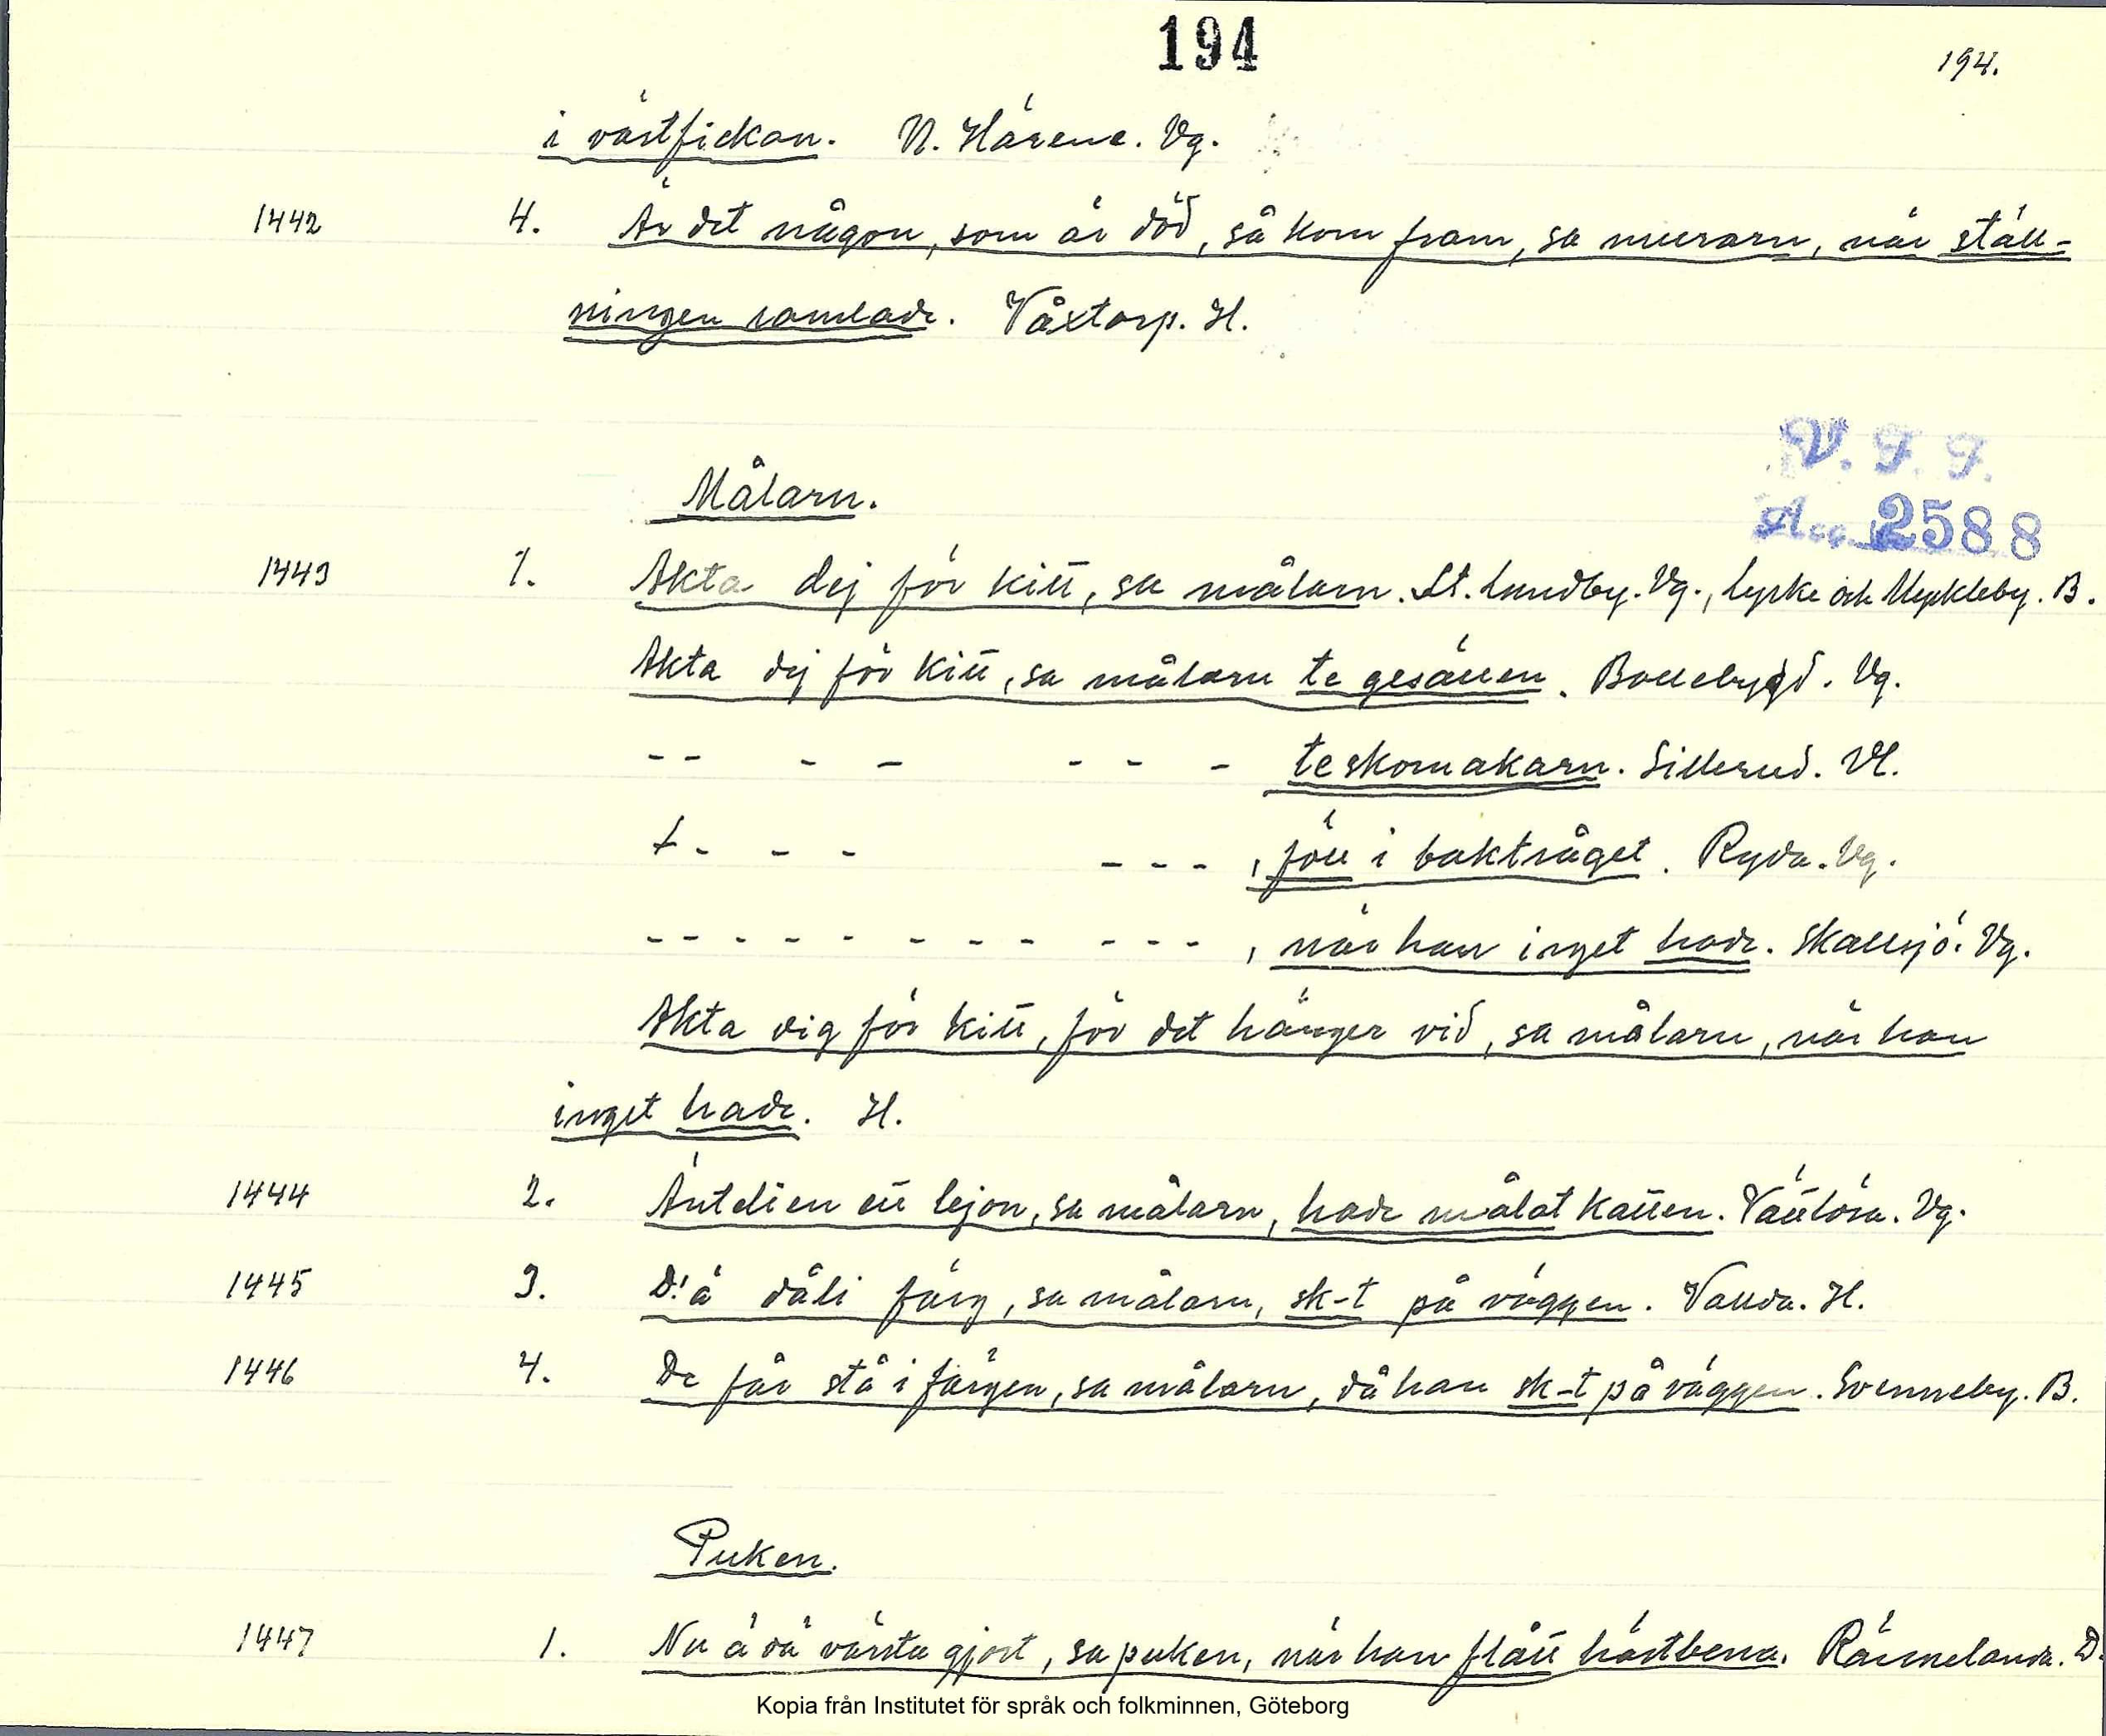 194
194.
i västfickan. N. Härene. Vg.
1442 4. Är det någon, som är död, så kom fram, sa murarn, när ställ-
ningen ramlade. Våxtorp. H.
V. F. F.
Målarn.
Acc. 2588
1443 1. Akta dej för kitt, sa målarn. St. Lundby. Vg., Lyrke och Myckleby. B.
Akta dej för kitt, sa målarn te gesällen. Bollebygd. Vg.
- - - - - - - te skomakarn. Sillerud. Vl.
+ - - - - - - , föll i baktråget. Ryda. Vg.
- - - - - - - - - - - , när han inget hade. Skallsjö. Vg.
Akta dig för kitt, för det hänger vid, sa målarn, när han
inget hade. H.
1444 2. Äntelien ett lejon, sa målarn, hade målat katten. Vättlösa. Vg.
1445 3. D' ä dåli färg, sa målarn, sk-t på väggen. Vallda. H.
1446 4. De får stå i färgen, sa målarn, då han sk-t på väggen. Svenneby. B.
Puken.
1447 1. Nu ä dä värsta gjort, sa puken, når han flått hästbena. Rännelanda. D.
Kopia från Institutet för språk och folkminnen, Göteborg